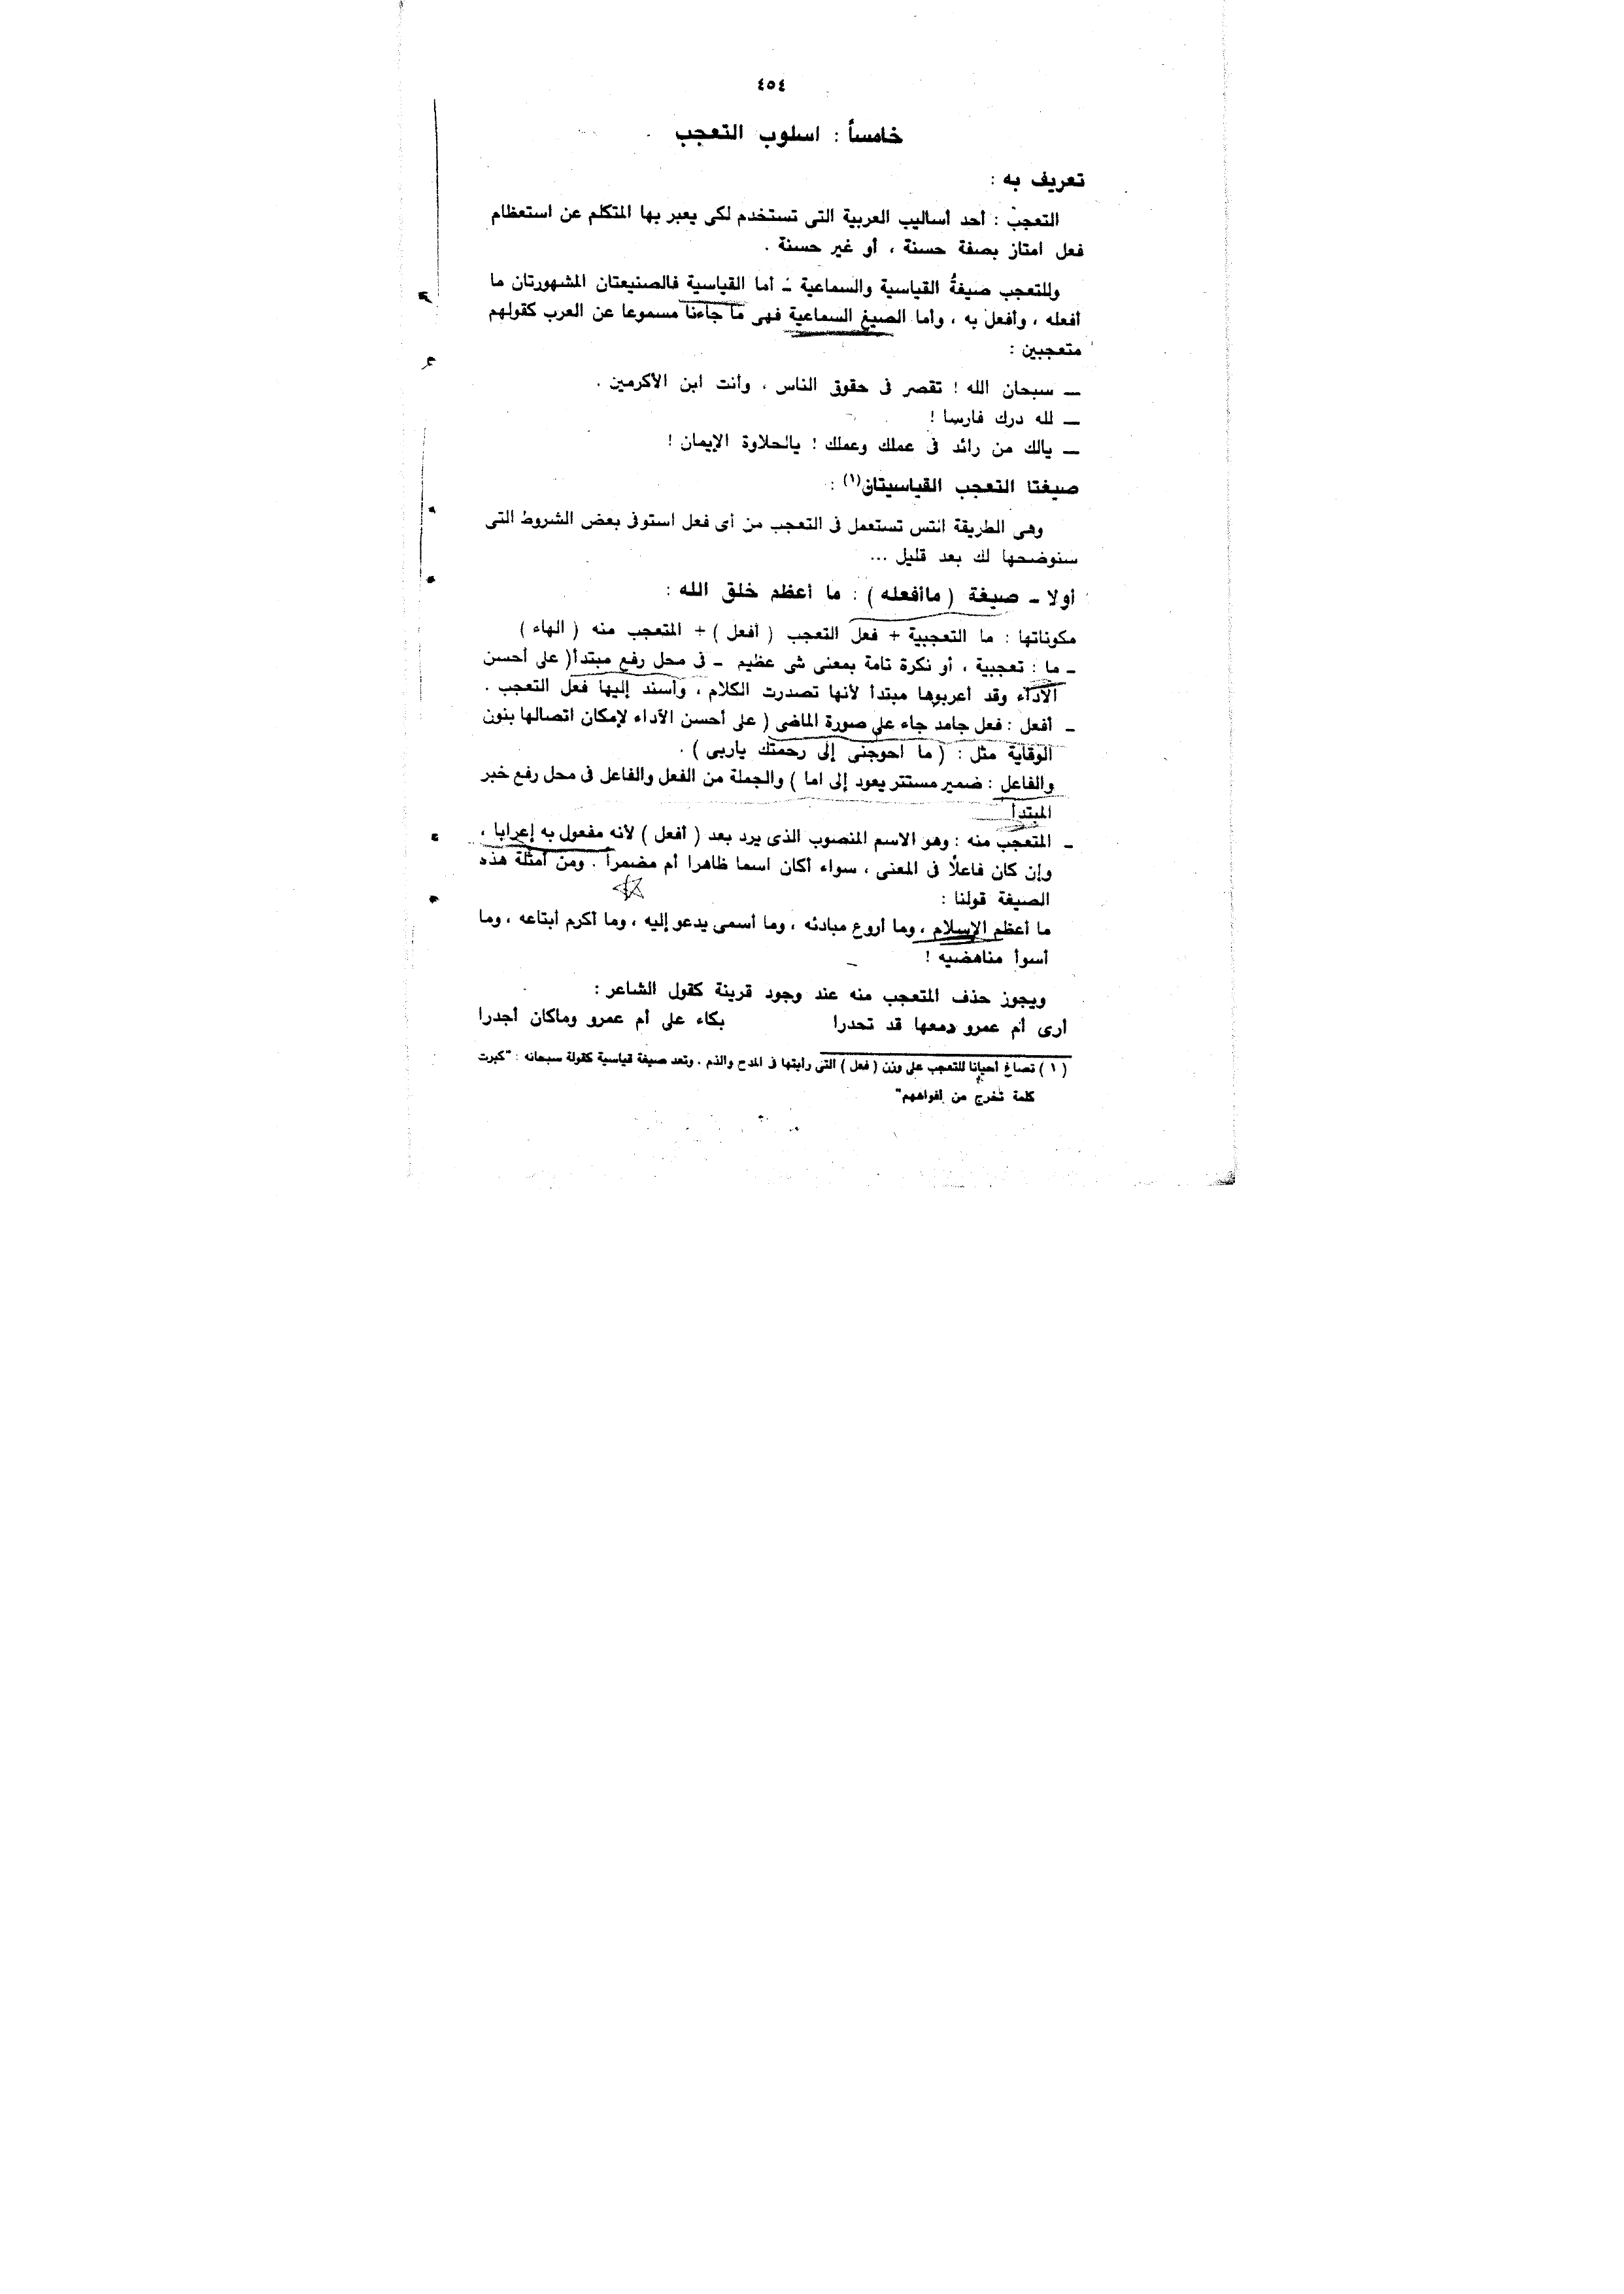 ٤٥٤
خامساً : اسلوب التعجب
تعريف به :
التعجب : أحد أساليب العربية التى تستخدم لكى يعبر بها المتكلم عن استعظام
فعل امتاز بصفة حسنة ، أو غير حسنة .
وللتعجب صيغةُ القياسية والسماعية – أما القياسية فالصنيعتان المشهورتان ما
أفعله ، وأفعل به ، وأما الصيغ السماعية فهى ما جاءنا مسموعا عن العرب كقولهم
متعجبين :
— سبحان الله ! تقصر فى حقوق الناس ، وأنت ابن الأكرمين .
— لله درك فارسا !
— يالك من رائد فى عملك وعملك ! يالحلاوة الإيمان !
صيغتا التعجب القياسيتان(١) :
وهى الطريقة انتس تستعمل فى التعجب من أى فعل استوفى بعض الشروط التى
سنوضحها لك بعد قليل ...
أولا – صيغة ( ماأفعله ) : ما أعظم خلق الله :
مكوناتها : ما التعجبية + فعل التعجب ( أفعل ) + المتعجب منه ( الهاء )
– ما : تعجبية ، أو نكرة تامة بمعنى شى عظيم – فى محل رفع مبتدأ( على أحسن
الآداء وقد أعربوها مبتدأ لأنها تصدرت الكلام ، وأسند إليها فعل التعجب .
– أفعل : فعل جامد جاء على صورة الماضى ( على أحسن الآداء لإمكان اتصالها بنون
الوقاية مثل : ( ما أحوجنى إلى رحمتك ياربى ) .
والفاعل : ضمير مستتر يعود إلى اما ) والجملة من الفعل والفاعل فى محل رفع خبر
المبتدأ
– المتعجب منه : وهو الاسم المنصوب الذى يرد بعد ( أفعل ) لأنه مفعول به إعرابا ،
وإن كان فاعلاً فى المعنى ، سواء أكان اسما ظاهرا أم مضمراً . ومن أمثلة هذه
الصيغة قولنا :
ما أعظم الإسلام ، وما أروع مبادئه ، وما أسمى يدعو إليه ، وما أكرم أبتاعه ، وما
أسوأ مناهضيه !
ويجوز حذف المتعجب منه عند وجود قرينة كقول الشاعر :
أرى أم عمرو دمعها قد تحدرا بكاء على أم عمرو وماكان أجدرا
( ١ ) تصاغ أحيانا للتعجب على وزن ( فعل ) التى رأيتها فى المدح والذم . وتعد صيغة قياسية كقولة سبحانه : "كبرت
كلمة تخرج من أفواههم"